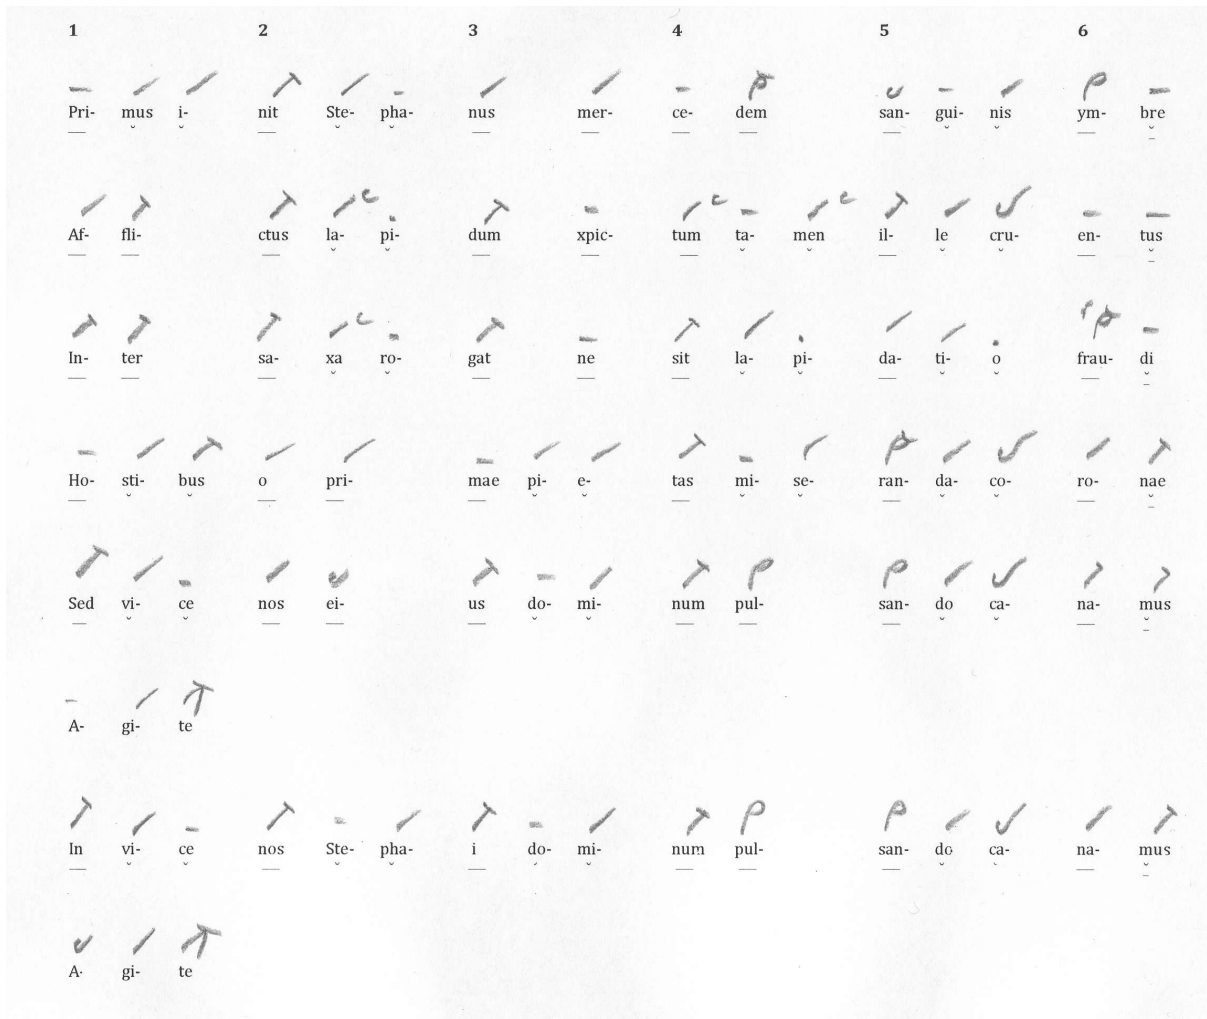 1 2 3 4 5 6
Pri- mus i- nit Ste- pha- nus mer- ce- dem san- gui- nis ym- bre
Af- fli- ctus la- pi- dum xpic- tum ta- men il- le cru- en- tus
In- ter sa- xa ro- gat ne sit la- pi- da- ti- o frau- di
Ho- sti- bus o pri- mae pi- e- tas mi- se- ran- da- co- ro- nae
Sed vi- ce nos ei- us do- mi- num pul- san- do ca- na- mus
A- gi- te
In vi- ce nos Ste- pha- i do- mi- num pul- san- do ca- na- mus
A- gi- te